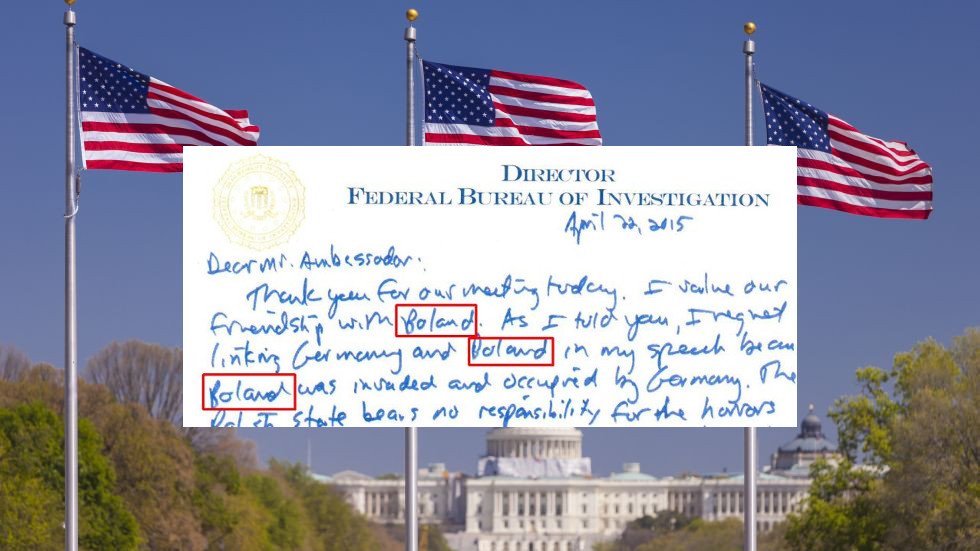 DIRECTOR
FEDERAL BUREAU OF INVESTIGATION
April 22, 2015
Dear Mr. Ambassador:
Thank you for our meeting today. I value our
friendship with Poland. As I told you, I regret
linking Germany and Poland in my speech becau
Poland was invaded and occupied by Germany. The
Polish State bears no responsibility for the horrors